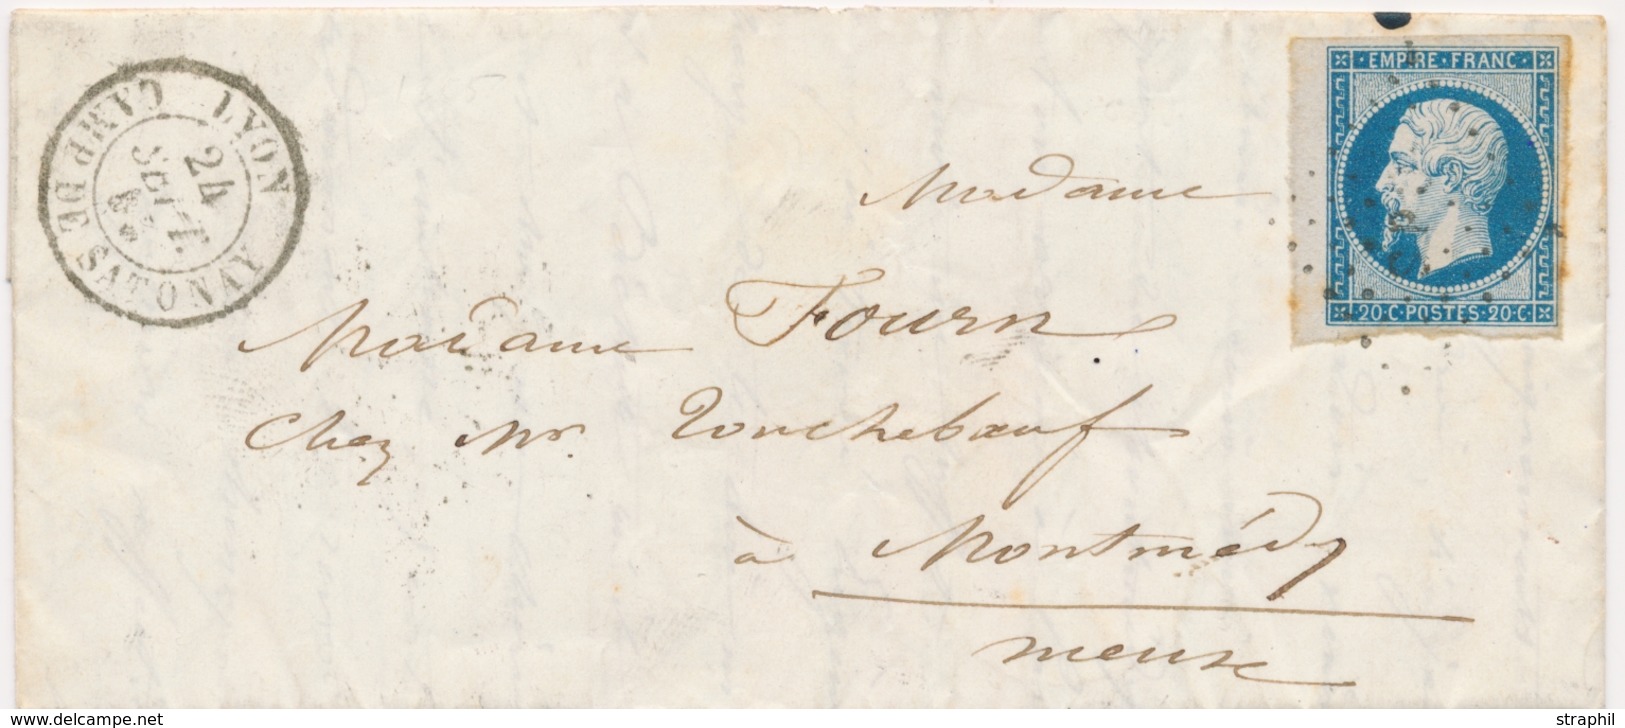 LYON
CAMP DE SATONAY
24
SEPT.
EMPIRE · FRANC ·
· 20 · C · POSTES · 20 · C ·
Madame
Madame Fourn
Chez Mr. Touchebœuf
à Montmédy
meuse
www.delcampe.net
straphil